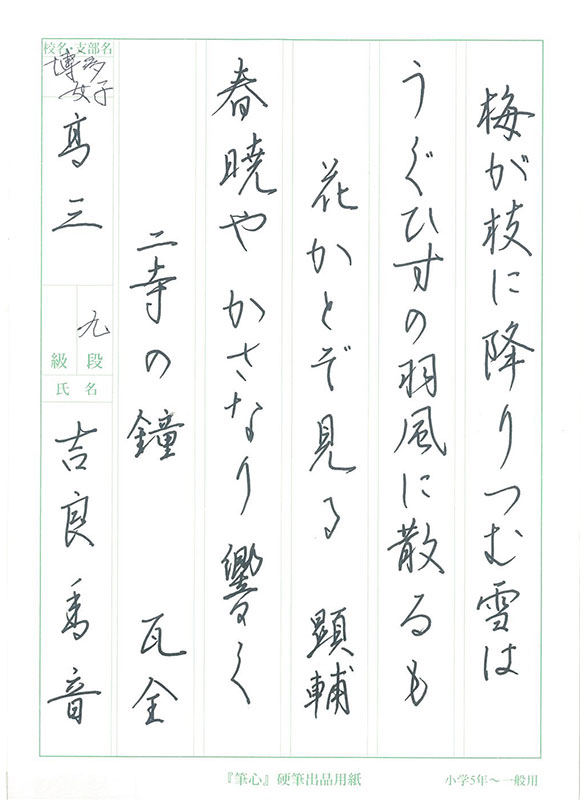 梅が枝に降りつむ雪は
うぐひすの羽風に散るも
花かとぞ見る　顕輔
春暁やかさなり響く
二寺の鐘　瓦全
校名・支部名
博多
女子
高三
九
級段
氏名
吉良秀音
『筆心』硬筆出品用紙
小学5年～一般用